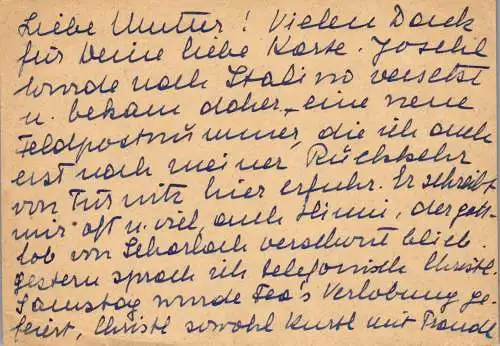 Liebe Mutter! Vielen Dank
für Deine liebe Karte. Joschl
wurde nach Stalino versetzt
u. bekam daher eine neue
Feldpostnummer, die ich auch
erst nach meiner Rückkehr
von Türnitz hier erfuhr. Er schreibt
mir oft u. viel, auch Heini, der gott-
lob von Scharlach verschont blieb.
gestern sprach ich telefonisch Christl.
Samstag wurde Fea's Verlobung ge-
feiert, Christl sowohl Kurtl mit Traudl